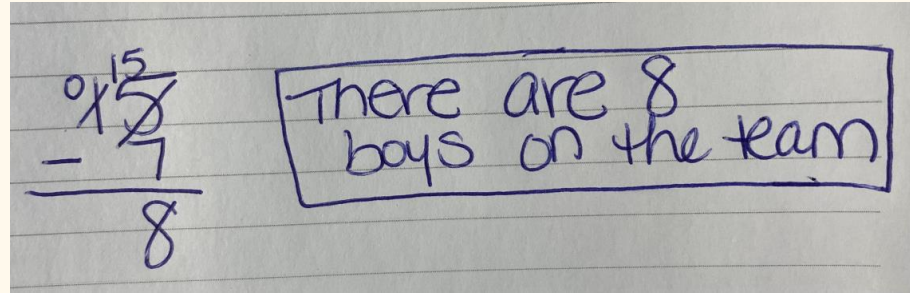 0 15
15
- 7
8
There are 8
boys on the team